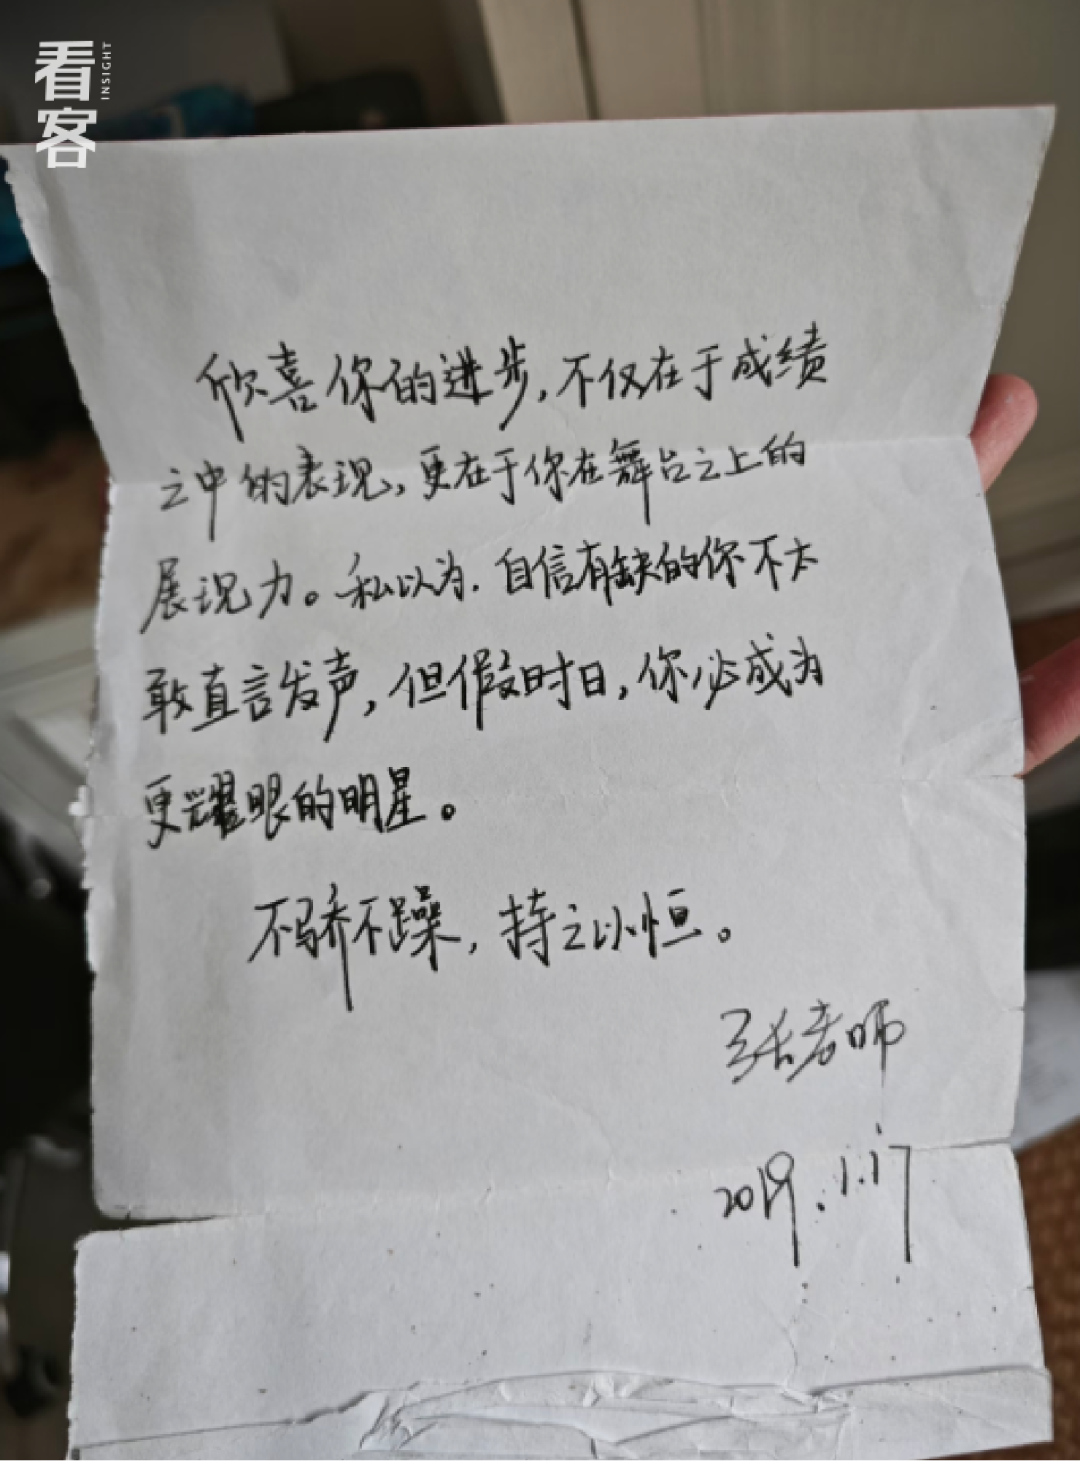 看客
INSIGHT
欣喜你的进步,不仅在于成绩
之中的表现,更在于你在舞台之上的
展现力。私以为,自信有缺的你不太
敢直言发声,但假时日,你必成为
更耀眼的明星。
不骄不躁,持之以恒。
张老师
2019.1.17